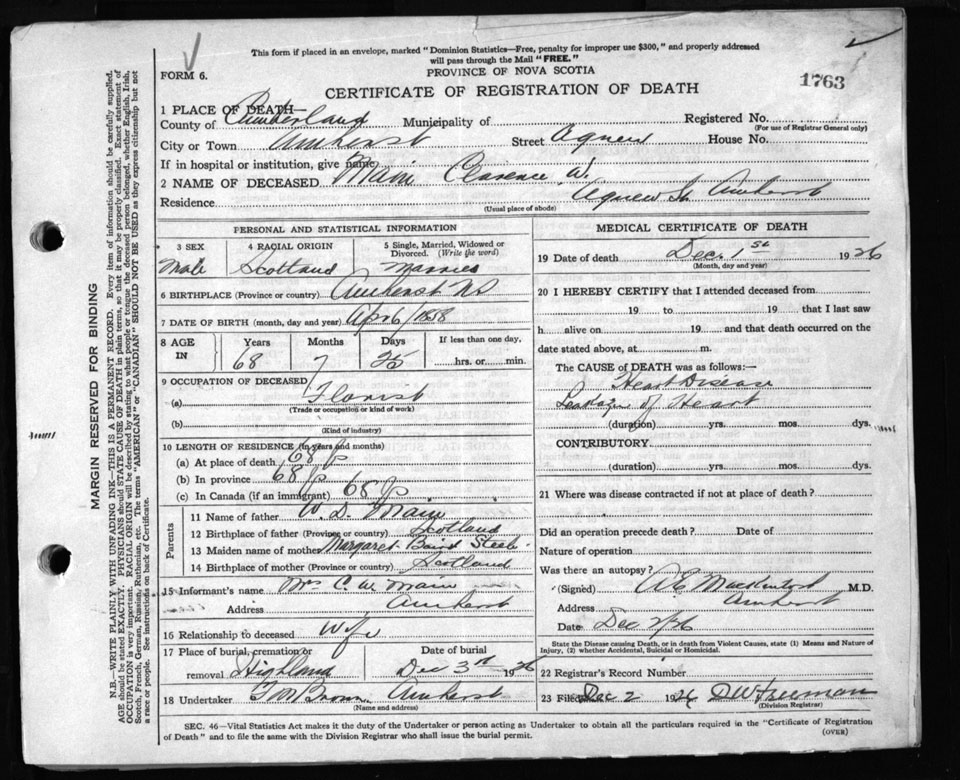 This form if placed in an envelope, marked "Dominion Statistics—Free, penalty for improper use $300," and properly addressed
will pass through the Mail "FREE."
FORM 6.
PROVINCE OF NOVA SCOTIA
1763
CERTIFICATE OF REGISTRATION OF DEATH
1 PLACE OF DEATH—
County of Cumberland Municipality of Registered No.
(For use of Registrar General only)
City or Town Amherst Street Agnew House No.
If in hospital or institution, give name
2 NAME OF DECEASED Main Clarence W.
Residence Agnew St. Amherst
(Usual place of abode)
PERSONAL AND STATISTICAL INFORMATION
3 SEX 4 RACIAL ORIGIN 5 Single, Married, Widowed or
Divorced. (Write the word)
Male Scotland Married
6 BIRTHPLACE (Province or country) Amherst NS
7 DATE OF BIRTH (month, day and year) Apr 6/1858
8 AGE IN Years Months Days If less than one day,
68 7 25 hrs. or min.
9 OCCUPATION OF DECEASED
(a) Florist
(Trade or occupation or kind of work)
(b)
(Kind of industry)
10 LENGTH OF RESIDENCE (in years and months)
(a) At place of death 68
(b) In province 68
(c) In Canada (if an immigrant) 68
Parents
11 Name of father W. D. Main
12 Birthplace of father (Province or country) Scotland
13 Maiden name of mother Margaret Baird
14 Birthplace of mother (Province or country) Scotland
15 Informant's name Mrs C. W. Main
Address Amherst
16 Relationship to deceased Wife
17 Place of burial, cremation or Date of burial
removal Highland Dec 3rd 1926
18 Undertaker Brown Amherst
(Name and address)
MEDICAL CERTIFICATE OF DEATH
19 Date of death Dec. 1st 1926
(Month, day and year)
20 I HEREBY CERTIFY that I attended deceased from
19 to 19 that I last saw
h alive on 19 and that death occurred on the
date stated above, at m.
The CAUSE of DEATH was as follows:—
Heart Disease
Leakage of Heart
(duration) yrs. mos. dys.
CONTRIBUTORY
(duration) yrs. mos. dys.
21 Where was disease contracted if not at place of death?
Did an operation precede death? Date of
Nature of operation
Was there an autopsy?
(Signed) A E Mackintosh M.D.
Address Amherst
Date Dec 2/26
State the Disease causing Death, or in death from Violent Causes, state (1) Means and Nature of
Injury, (2) whether Accidental, Suicidal or Homicidal.
22 Registrar's Record Number
23 Filed Dec 2 1926 D W Freeman
(Division Registrar)
SEC. 46—Vital Statistics Act makes it the duty of the Undertaker or person acting as Undertaker to obtain all the particulars required in the "Certificate of Registration
of Death" and to file the same with the Division Registrar who shall issue the burial permit.
(OVER)
MARGIN RESERVED FOR BINDING
N.B.—WRITE PLAINLY WITH UNFADING INK—THIS IS A PERMANENT RECORD. Every item of information should be carefully supplied.
AGE should be stated EXACTLY. PHYSICIANS should STATE CAUSE OF DEATH in plain terms, so that it may be properly classified. Exact statement of
OCCUPATION is very important. RACIAL ORIGIN will be described by stating to what people or tongue the deceased person belonged, whether English, Irish,
Scotch, French, German, Russian, Ruthenian, etc. The terms "AMERICAN" or "CANADIAN" SHOULD NOT BE USED as they express citizenship but not
a race or people. See instructions on back of Certificate.